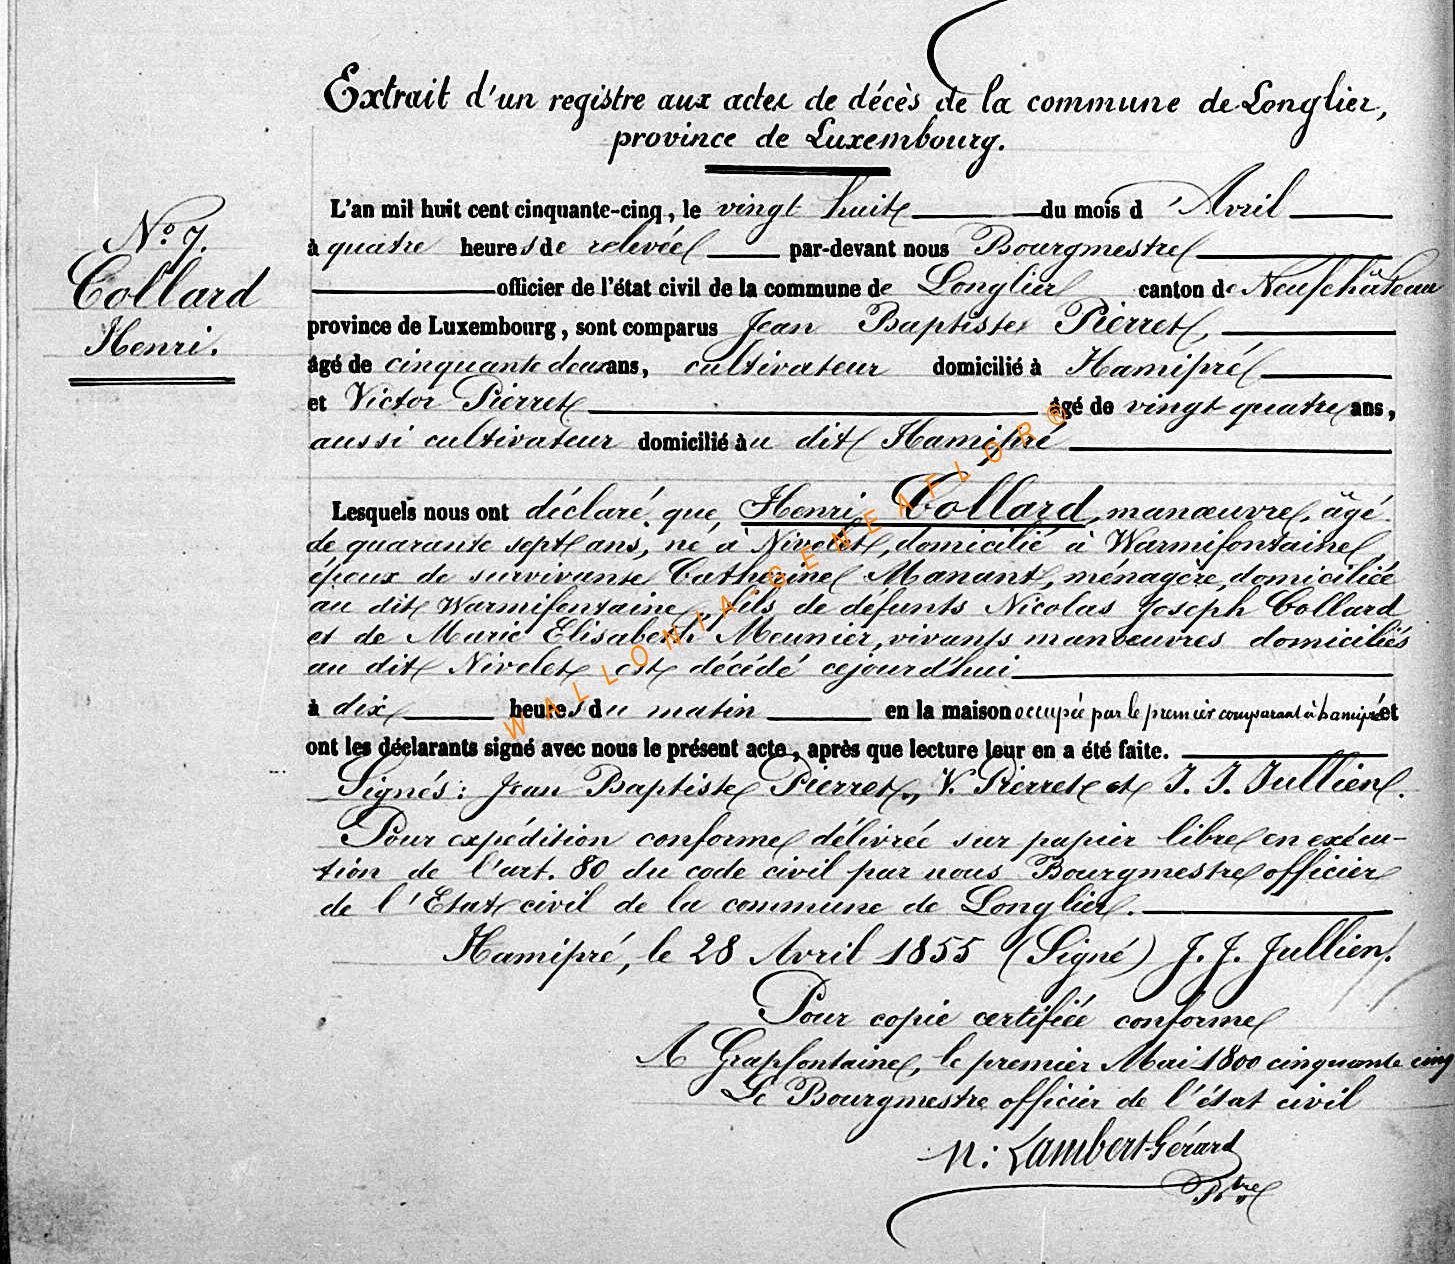 Extrait d'un registre aux actes de décès de la commune de Longlier,
province de Luxembourg.
N.º 7.
Collard
Henri.
L'an mil huit cent cinquante-cinq, le vingt huit du mois d'Avril
à quatre heures de relevée par-devant nous Bourgmestre
officier de l'état civil de la commune de Longlier canton de Neufchâteau
province de Luxembourg, sont comparus Jean Baptiste Pierret,
âgé de cinquante deux ans, cultivateur domicilié à Hamipré
et Victor Pierret âgé de vingt quatre ans,
aussi cultivateur domicilié au dit Hamipré
Lesquels nous ont déclaré que Henri Collard, manœuvre, âgé
de quarante sept ans, né à Nivelet, domicilié à Warmifontaine,
époux de survivante Catherine Manant, ménagère, domiciliée
au dit Warmifontaine, fils de défunts Nicolas Joseph Collard
et de Marie Elisabeth Meunier, vivants manœuvres domiciliés
au dit Nivelet est décédé cejourd'hui
à dix heures du matin en la maison occupée par le premier comparant à hamipré et
ont les déclarants signé avec nous le présent acte, après que lecture leur en a été faite.
Signés: Jean Baptiste Pierret, V. Pierret et J. J. Jullien.
Pour expédition conforme délivrée sur papier libre en exécu-
tion de l'art. 80 du code civil par nous Bourgmestre officier
de l'Etat civil de la commune de Longlier.
Hamipré, le 28 Avril 1855 (Signé) J. J. Jullien.
Pour copie certifiée conforme
A Grapfontaine, le premier Mai 1800 cinquante cinq
Le Bourgmestre officier de l'état civil
N: Lambert-Gérard
Btre
WALLONIA-GENEAFLOR®